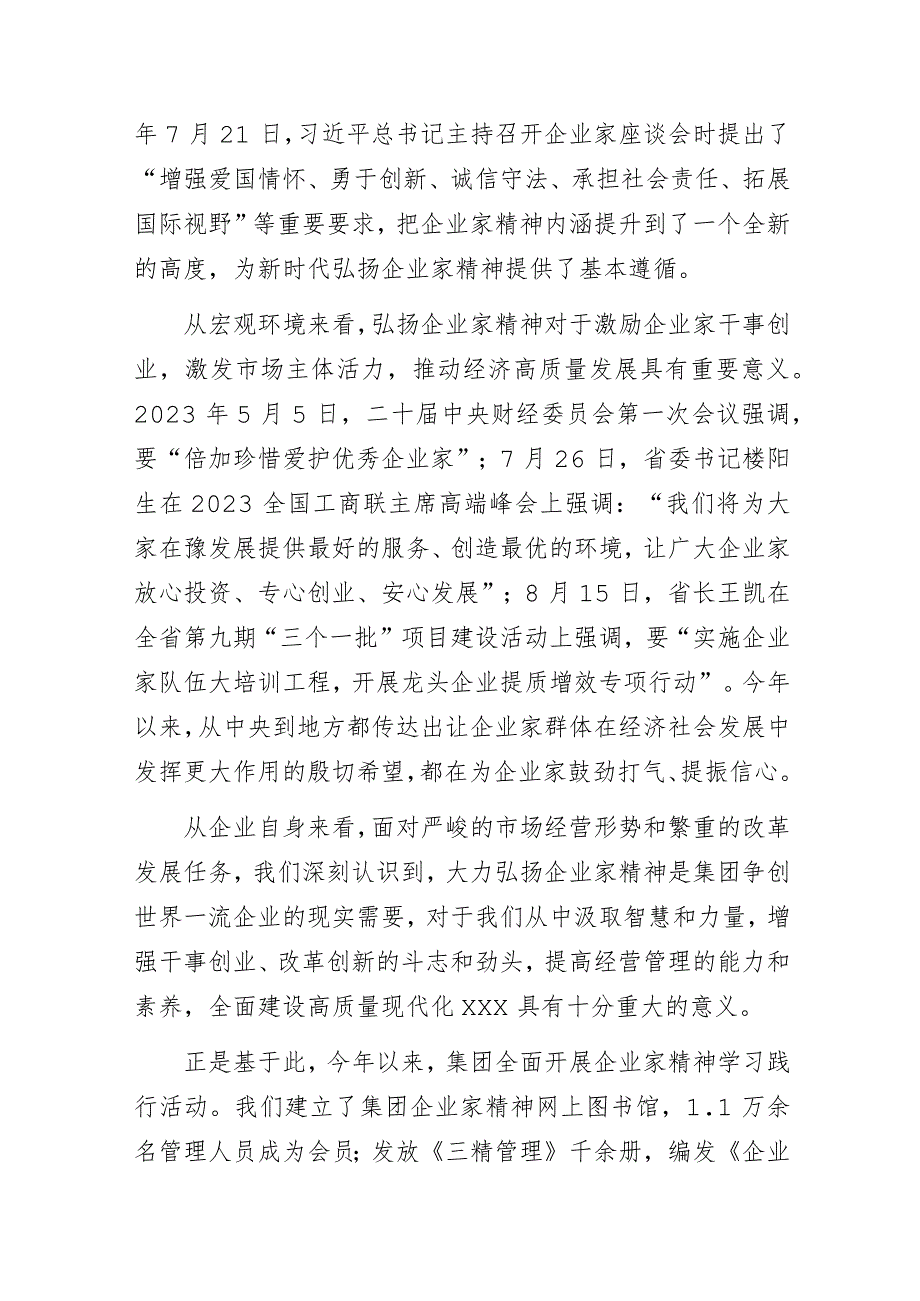 年 7 月 21 日,习近平总书记主持召开企业家座谈会时提出了
“增强爱国情怀、勇于创新、诚信守法、承担社会责任、拓展
国际视野”等重要要求，把企业家精神内涵提升到了一个全新
的高度，为新时代弘扬企业家精神提供了基本遵循。
从宏观环境来看,弘扬企业家精神对于激励企业家干事创
业，激发市场主体活力，推动经济高质量发展具有重要意义。
2023 年 5 月 5 日，二十届中央财经委员会第一次会议强调，
要“倍加珍惜爱护优秀企业家”；7 月 26 日，省委书记楼阳
生在 2023 全国工商联主席高端峰会上强调：“我们将为大
家在豫发展提供最好的服务、创造最优的环境，让广大企业家
放心投资、专心创业、安心发展”；8 月 15 日，省长王凯在
全省第九期“三个一批”项目建设活动上强调，要“实施企业
家队伍大培训工程，开展龙头企业提质增效专项行动”。今年
以来,从中央到地方都传达出让企业家群体在经济社会发展中
发挥更大作用的殷切希望,都在为企业家鼓劲打气、提振信心。
从企业自身来看,面对严峻的市场经营形势和繁重的改革
发展任务，我们深刻认识到，大力弘扬企业家精神是集团争创
世界一流企业的现实需要，对于我们从中汲取智慧和力量，增
强干事创业、改革创新的斗志和劲头，提高经营管理的能力和
素养，全面建设高质量现代化 XXX 具有十分重大的意义。
正是基于此，今年以来，集团全面开展企业家精神学习践
行活动。我们建立了集团企业家精神网上图书馆，1.1 万余
名管理人员成为会员；发放《三精管理》千余册，编发《企业